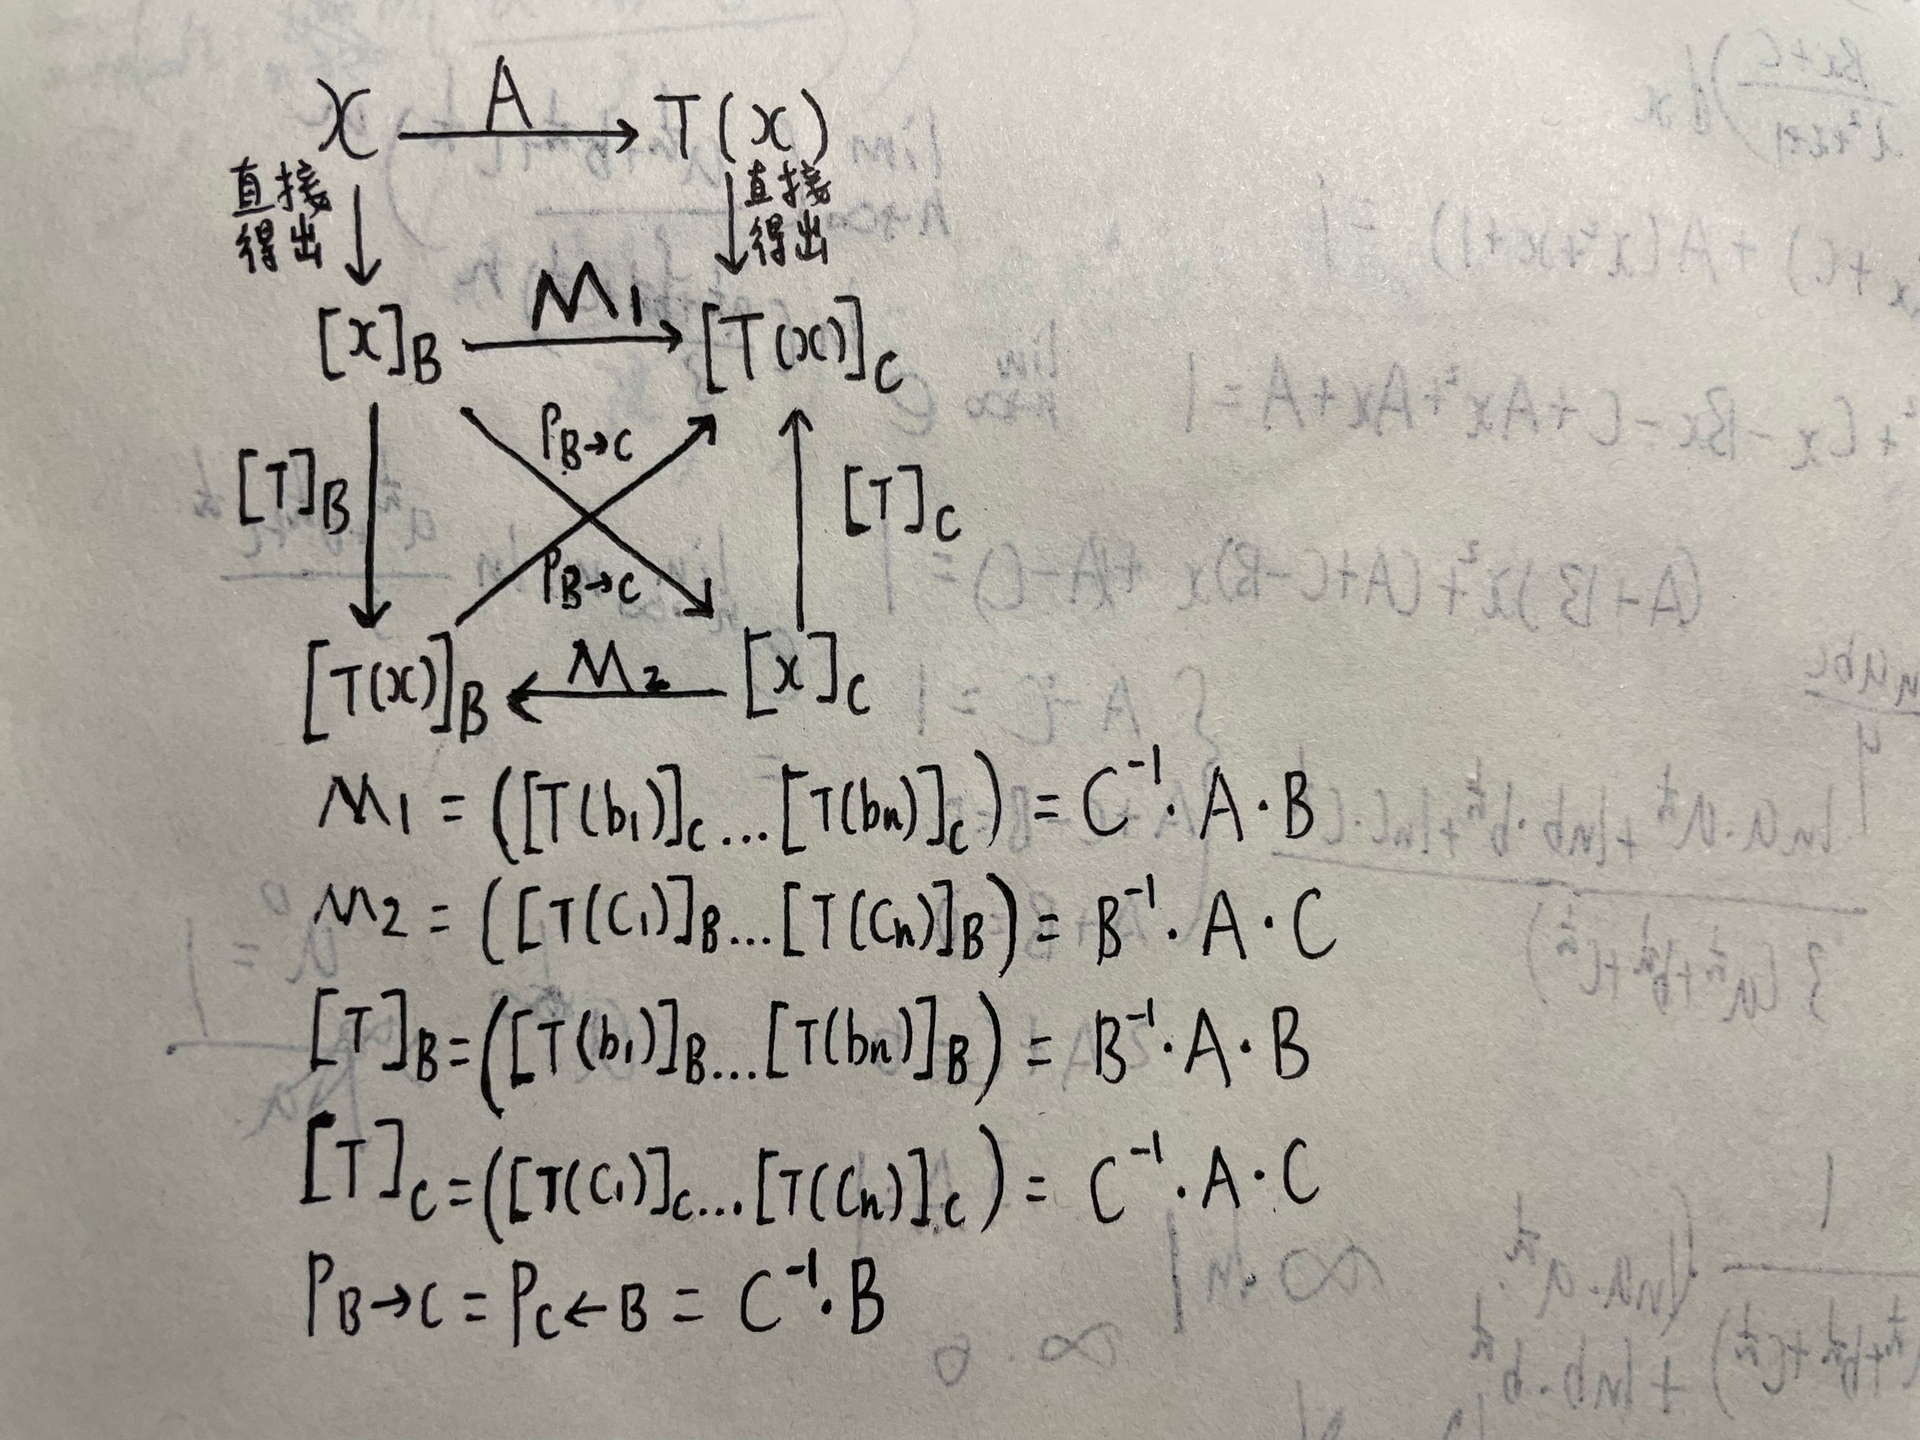 x A→ T(x)
直接 直接
得出 得出
[x]_B M₁→ [T(x)]_C
P_{B→C}
[T]_B [T]_C
P_{B→C}
[T(x)]_B ←M₂ [x]_C
M₁ = ([T(b₁)]_C ... [T(bn)]_C) = C⁻¹·A·B
M₂ = ([T(C₁)]_B ... [T(Cn)]_B) = B⁻¹·A·C
[T]_B = ([T(b₁)]_B ... [T(bn)]_B) = B⁻¹·A·B
[T]_C = ([T(C₁)]_C ... [T(Cn)]_C) = C⁻¹·A·C
P_{B→C} = P_{C←B} = C⁻¹·B